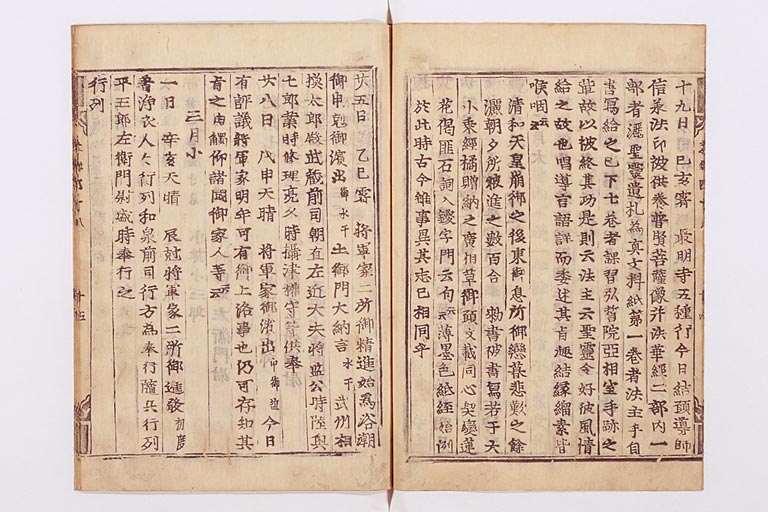 十九日 己亥霽 最明寺五種行今日結願導師
信承法印被供養普賢菩薩像幷法華經二部内一
部者瀝聖靈遺札為真文料紙第一卷者法主手自
書写給之已下七卷者課習弘誓院亞相室手跡之
輩故以被終其功是則云法主云聖靈令好彼風情
給之故也唱導百語詳而委述其旨趣結縁緇素皆
喉咽云々
清和天皇崩御之後東御息所御戀慕悲歎之餘
灑朝夕所被進之數百合 勅書被書寫若干大
小乘經橘贈納之廣相草御頭文載同心契變蓮
花偈匪石詞入鍐字門云句云々薄墨色紙經始例
於此時古今雖事異其志已相同乎
廿五日 乙巳霽 將軍家二所御精進始爲浴潮
御申剋御濱出御水干土御門大納言水干武州相
換太郎武藏前司朝直左近大夫將監公時陸奥
七郎業時修理亮久時攝津權守等供奉
廿八日 戊申天晴 將軍家御濱出 今日
有評議將軍家明年可有御上洛事也仍可存知其
旨之由觸仰諸國御家人等云々
三月小
一日 辛亥天晴 辰剋將軍家二所御進發
著浄衣人々行列和泉前司行方為奉行隨兵行列
平五郎左衛門尉盛時奉行之
行列